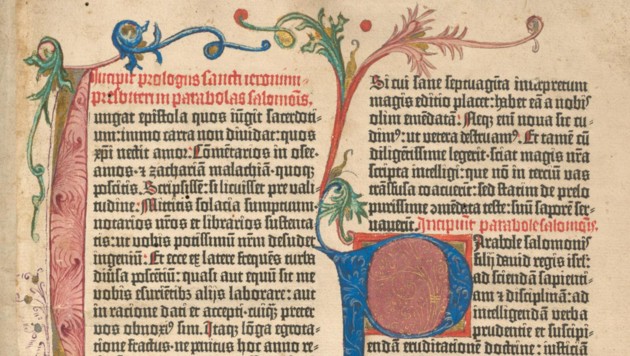 Incipit prologus sancti iheronimi
presbiteri in parabolas salomonis.
Iungat epistola quos iūgit sacerdoti-
um: immo carta non diuidat: quos
xp̄i nectit amor. Cōmētarios in osee.
amos. ⁊ zachariam malachiā. quoq;
poscitis. Scripsissē: si licuisset pre vali-
tudine. Mittitis solacia sumptuum.
notarios nr̄os et librarios sustenta-
tis: ut vobis potissimū nr̄m desudet
ingeniū. Et ecce ex latere freq̄ns turba
diūsa poscētiū: quasi aut equū sit me
vobis esuriētibꝫ alijs laborare: aut
in ratione dati et accepti. cuiq̄ preter
vos obnoxiꝰ sim. Itaq; lōga egrota-
tione fractus. ne penitus hoc anno re-
Si cui sane septuaginta interpretum
magis editio placet: habet eā a nobis
olim emēdatā. Neq; em̄ noua sic cu-
dimꝰ: ut vetera destruamꝰ. Et tamē cū
diligētissime legerit. sciat magis nr̄a
scripta intelligi: que nō in terciū vas
trāsfusa coacuerīt: sed statim de prelo
purissime ⁊mēdata teste: suū saporē ser-
uauerīt. Incipiunt parabole salomonis.
Parabole salomonis
filij dauid regis isrl̄:
ad sciendā sapienti-
am ⁊ disciplinā: ad
intelligendā verba
prudentie et suscipi-
endā eruditationē doctrine: iusticiā